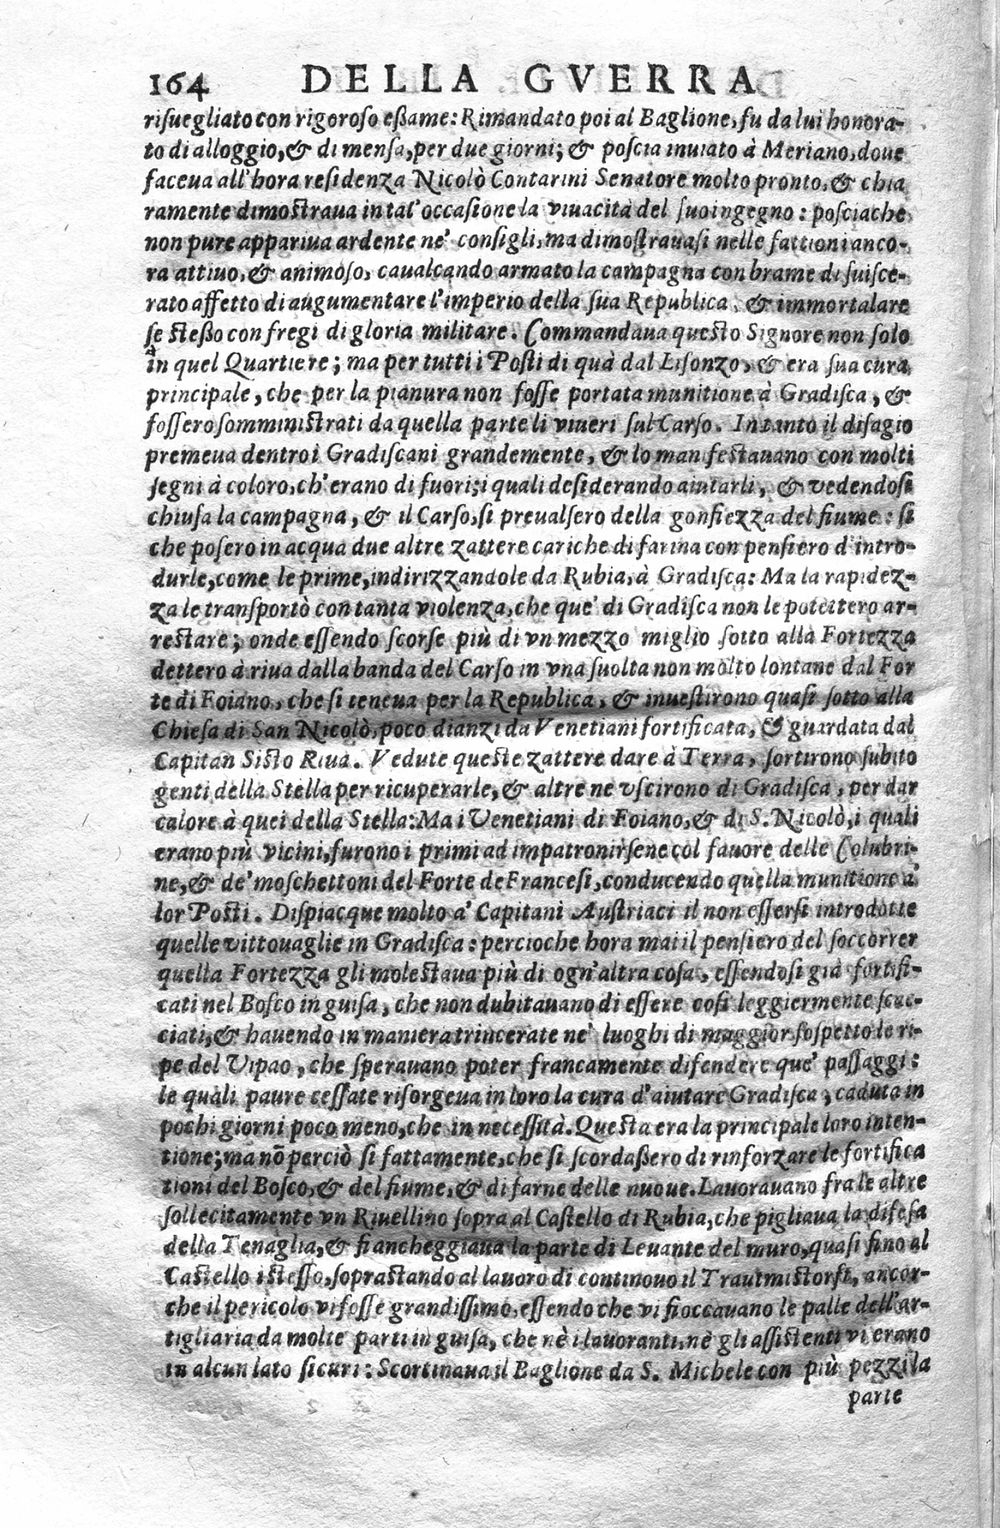 164 DELLA GVERRA
risuegliato con rigoroso eßame: Rimandato poi al Baglione, fu da lui honora-
to di alloggio, & di mensa, per due giorni; & poscia inuiato à Meriano, doue
faceua all'hora residenza Nicolò Contarini Senatore molto pronto, & chia
ramente dimostraua in tal'occasione la viuacità del suo ingegno: posciache
non pure appariua ardente ne' consigli, ma dimostrauasi nelle fattioni anco-
ra attiuo, & animoso, caualcando armato la campagna con brame di suisce-
rato affetto di augumentare l'imperio della sua Republica, & immortalare
se steßo con fregi di gloria militare. Commandaua questo Signore non solo
in quel Quartiere; ma per tutti i Posti di quà dal Lisonzo, & era sua cura
principale, che per la pianura non fosse portata munitione à Gradisca, &
fossero somministrati da quella parte li viueri sul Carso. In tanto il disagio
premeua dentro i Gradiscani grandemente, & lo manifestauano con molti
segni à coloro, ch'erano di fuori; i quali desiderando aiutarli, & vedendosi
chiusa la campagna, & il Carso, si preualsero della gonfiezza del fiume: si
che posero in acqua due altre zattere cariche di farina con pensiero d'intro-
durle, come le prime, indirizzandole da Rubia, à Gradisca: Ma la rapidez-
za le transportò con tanta violenza, che que' di Gradisca non le potettero ar-
restare; onde essendo scorse più di vn mezzo miglio sotto alla Fortezza
dettero à riua dalla banda del Carso in vna suolta non molto lontane dal For
te di Foiano, che si teneua per la Republica, & inuestirono quasi sotto alla
Chiesa di San Nicolò, poco dianzi da Venetiani fortificata, & guardata dal
Capitan Sisto Riua. Vedute queste zattere dare à Terra, sortirono subito
genti della Stella per ricuperarle, & altre ne vscirono di Gradisca, per dar
calore à quei della Stella: Ma i Venetiani di Foiano, & di S. Nicolò, i quali
erano più vicini, furono i primi ad impatronirsene col fauore delle Colubri-
ne, & de' moschettoni del Forte de Francesi, conducendo quella munitione a'
lor Posti. Dispiacque molto a' Capitani Austriaci il non essersi introdotte
quelle vittouaglie in Gradisca: percioche hora mai il pensiero del soccorrer
quella Fortezza gli molestaua più di ogn'altra cosa, essendosi già fortifi-
cati nel Bosco in guisa, che non dubitauano di essere così leggiermente scac-
ciati, & hauendo in maniera trincerate ne' luoghi di maggior sospetto le ri-
pe del Vipao, che sperauano poter francamente difendere que' passaggi:
le quali paure cessate risorgeua in loro la cura d'aiutare Gradisca, caduta in
pochi giorni poco meno, che in necessità. Questa era la principale loro inten-
tione; ma nõ perciò si fattamente, che si scordaßero di rinforzare le fortifica
tioni del Bosco, & del fiume, & di farne delle nuoue. Lauorauano fra le altre
sollecitamente vn Riuellino sopra al Castello di Rubia, che pigliaua la difesa
della Tenaglia, & fiancheggiaua la parte di Leuante del muro, quasi fino al
Castello istesso, soprastando al lauoro di continouo il Trautmistorft, ancor-
che il pericolo vi fosse grandissimo, essendo che vi fioccauano le palle dell'ar-
tigliaria da molte parti in guisa, che nè i lauoranti, nè gli assistenti vi erano
in alcun lato sicuri: Scortinaua il Baglione da S. Michele con più pezzi la
parte